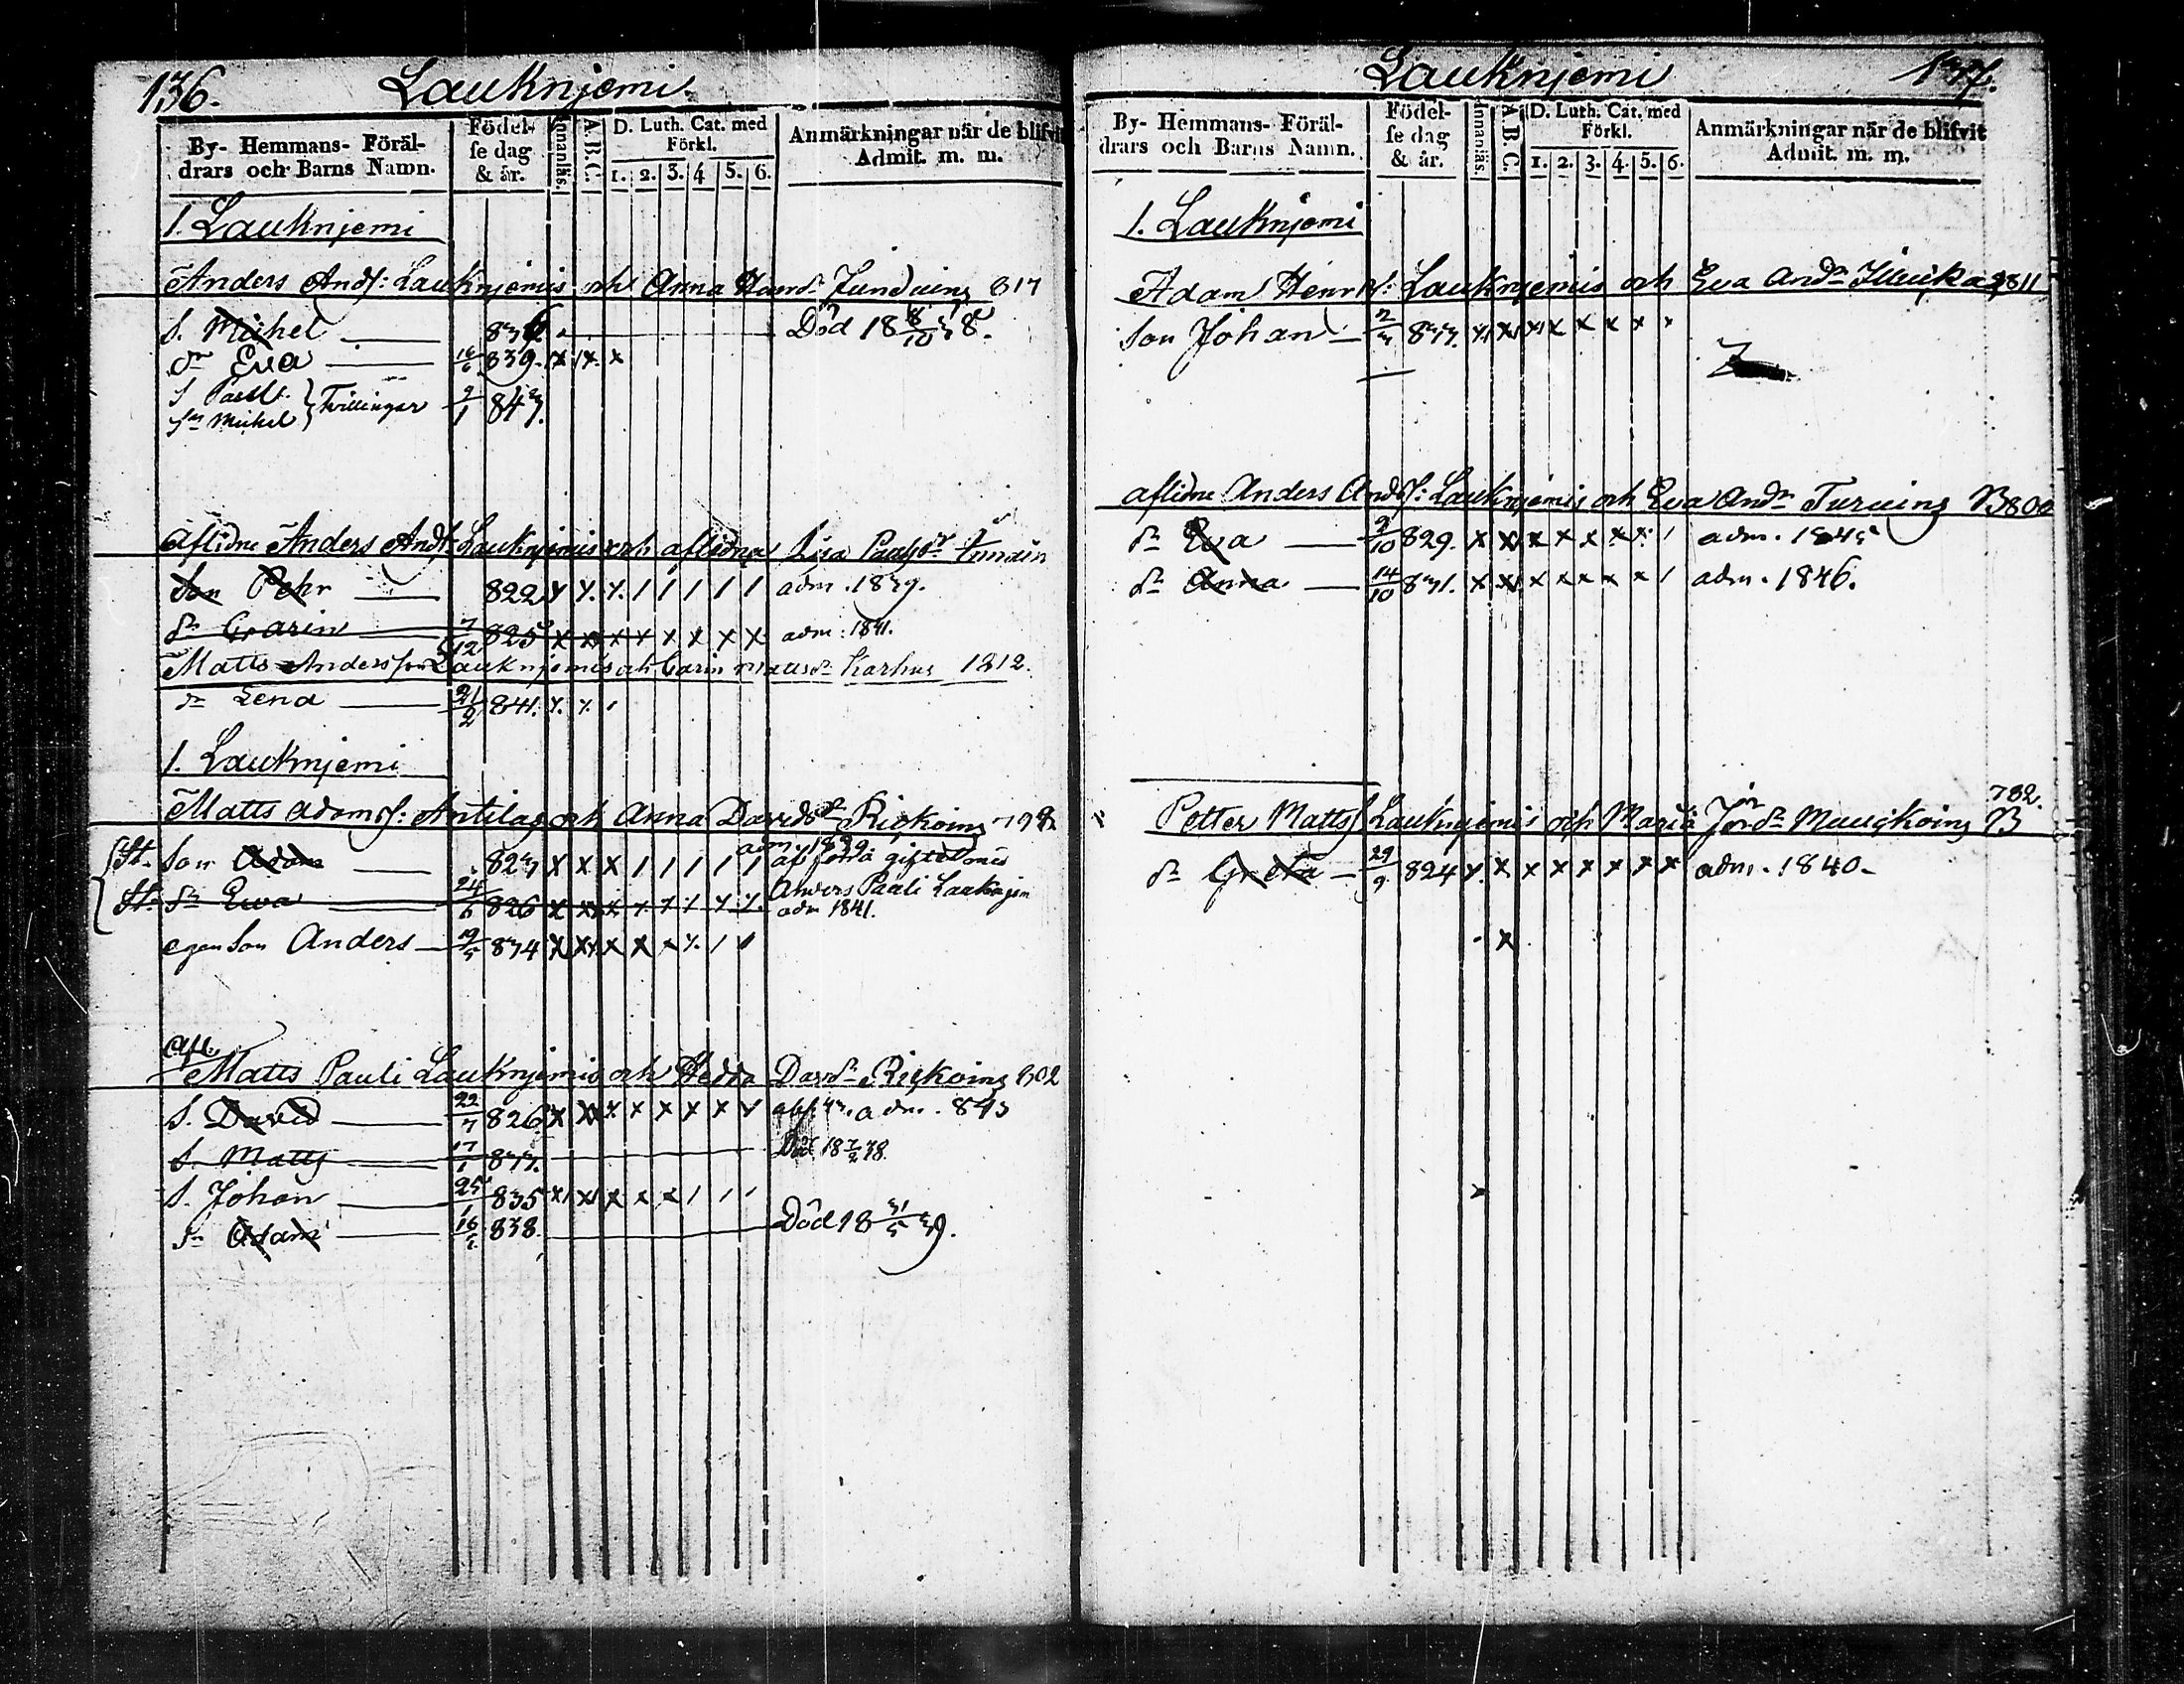 136. Lauknjemi
By- Hemmans- Föräl-
drars och Barns Namn.
Födel-
se dag
& år.
Innanläs.
A.B.C.
D. Luth. Cat. med
Förkl.
1. 2. 3. 4 5. 6.
Anmärkningar när de blifvit
Admit. m. m.
1. Lauknjemi
Anders Andſ: Lauknjemis och Anna 817
S. Michel 836 Död 18 8/10 38.
dr Eva 16/6 839. x x x
S Paul
Sn Michel } Tvillingar 2/1 843.
Aflidne Anders Andſ: Lauknjemis och aflidna Lisa Paulsdr
Son Pehr 822 x x x / / / / / adm. 1839.
dr Carin 7/12 825 x x x x x x x x adm: 1841.
Matts Andersson Lauknjemis och Carin Mattsdr Karhus 1812.
dr Lena 21/2 841.
1. Lauknjemi
Matts Adamſ: Antilas och Anna Davidsdr Rickoins 798
St. Son Adam 823 x x x / / / / / adm. 1839
af gift med
Anders Pauli Lauknjem
St. dr Ewa 24/6 826 adm 1841.
egen Son Anders 19/5 834 x x x x x x / /
Afl.
Matts Pauli Lauknjemis och Hedda Davdr Rickoins 802
S. David 22/7 826 x x x x x x x x adm. 843
S. Matts 17/1 833. Död 18 7/2 38.
S. Johan 25/1 835 x x x x x / / /
Sn Adam 16/2 838. Död 18 31/5 39.
Lauknjemi 137.
By- Hemmans- Föräl-
drars och Barns Namn.
Födel-
se dag
& år.
Innanläs.
A.B.C.
D. Luth. Cat. med
Förkl.
1. 2. 3. 4. 5. 6.
Anmärkningar när de blifvit
Admit. m. m.
1. Lauknjemi
Adam Henrſ: Lauknjemis och Eva Andr 1811
Son Johan 2/3 833. x x x x x x x x
aflidne Anders Andſ: Lauknjemis och Eva Andr Turuins B800
dr Eva 9/10 829. x x x x x x x / adm. 1845
dr Anna 14/10 831. x x x x x x x / adm. 1846.
782.
Petter Mattsſ Lauknjemis och Maria Jörsdr Mauckoins B
dr Greta 29/9 824 x x x x x x x x adm. 1840.